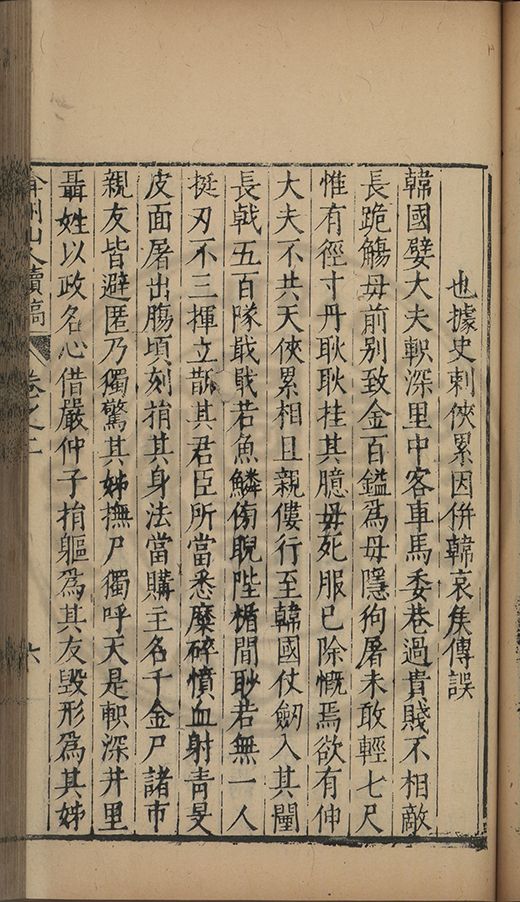 也據史刺俠累因併韓哀矦傳誤
韓國嬖大夫軹深里中客車馬委巷過貴賤不相敵
長跪觴母前别致金百鎰爲母隱狗屠未敢輕七尺
惟有徑寸丹耿耿挂其臆毋死服巳除慨焉欲有伸
大夫不共天俠累相且親僂行至韓國仗劒入其闈
長戟五百隊戢戢若魚鱗傍睨陛楯間眇若無一人
挺刃不三揮立鄁其君臣所當悉糜碎憤血射青旻
皮面屠出膓頃刻捐其身法當購主名千金尸諸市
親友皆避匿乃獨驚其姊撫尸獨呼天是軹深井里
聶姓以政名心借嚴仲子捐軀爲其友毀形爲其姊
弇州山人續稿 卷之二 六